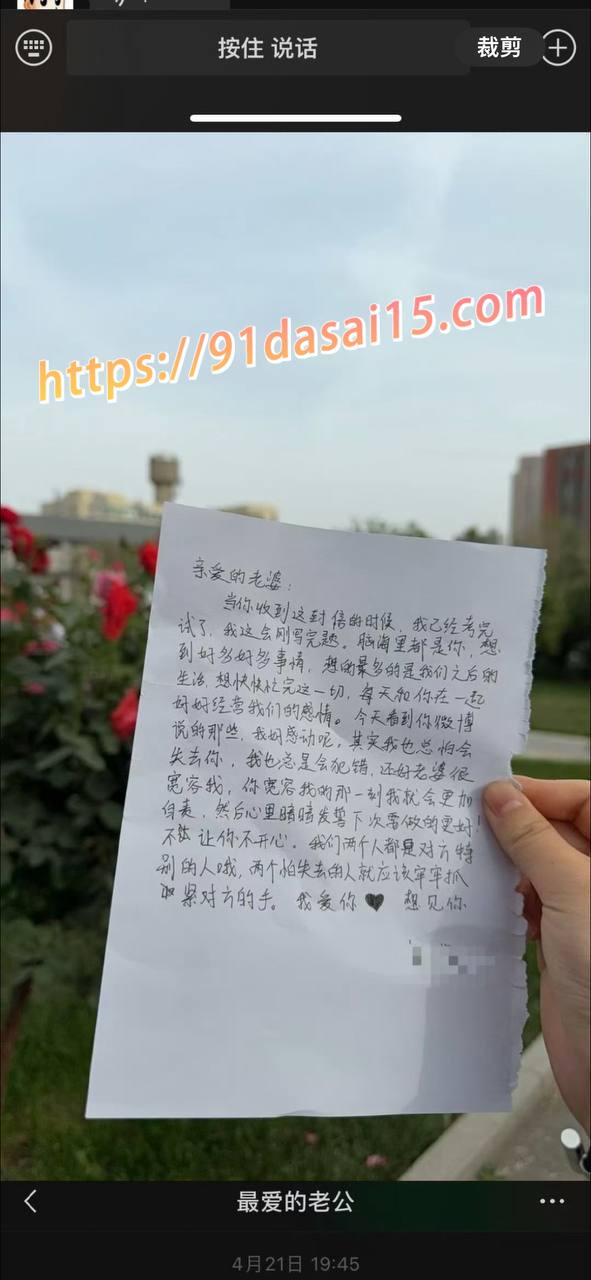 按住 说话
裁剪
https://91dasai15.com
亲爱的老婆：
当你收到这封信的时候，我已经考完
试了，我这会刚写完题。脑海里都是你，想
到好多好多事情，想的最多的是我们之后的
生活，想快快忙完这一切，每天和你在一起
好好经营我们的感情。今天看到你微博
说的那些，我好感动呢，其实我也总怕会
失去你，我也总是会犯错，还好老婆很
宽容我，你宽容我的那一刻我就会更加
自责，然后心里暗暗发誓下次要做的更好！
不让你不开心。我们两个人都是对方特
别的人哦，两个怕失去的人就应该牢牢抓
紧对方的手。我爱你♥ 想见你
最爱的老公
4月21日 19:45